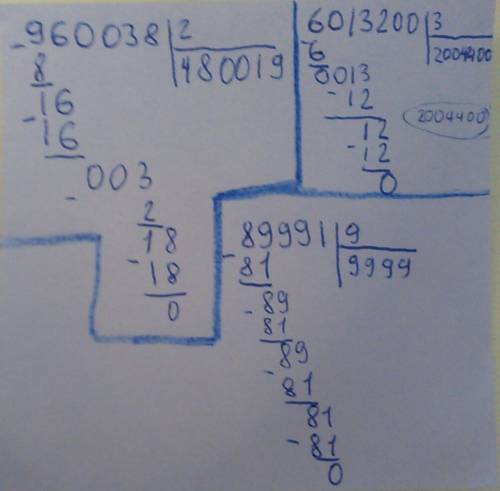 -960038|2
8 |480019
16
-16
003
-
2
18
-18
0
6013200|3
-6 |2004400
0013
-12
2004400
12
-12
0
-89991|9
81 |9999
-89
81
-89
81
81
-81
0